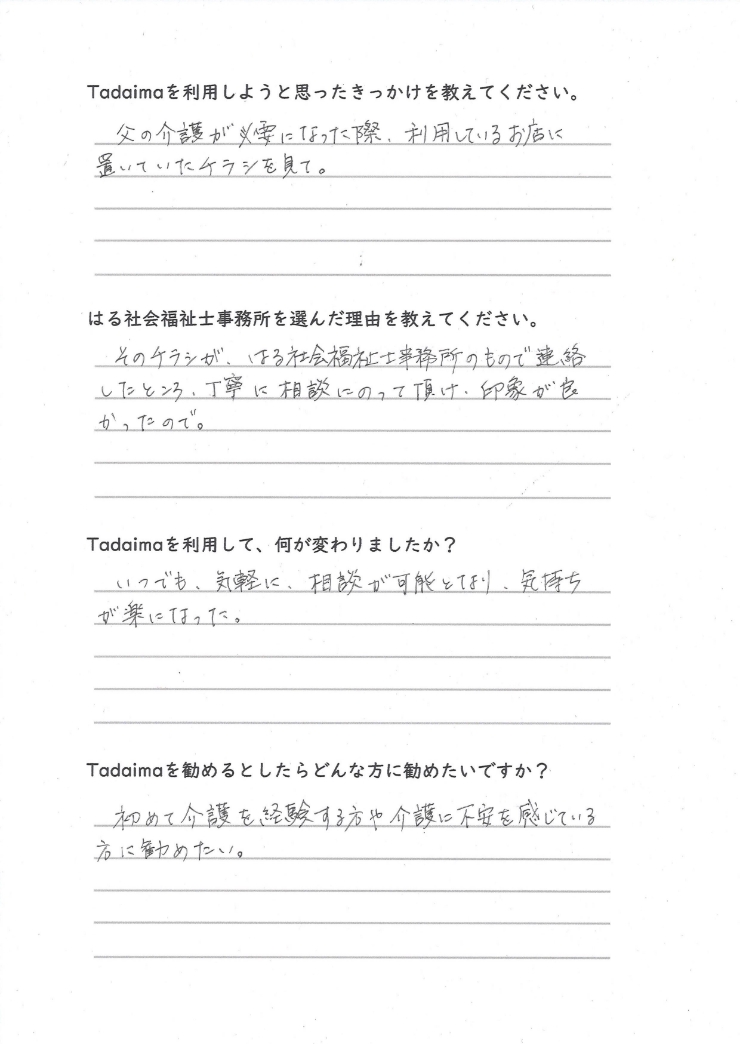 Tadaimaを利用しようと思ったきっかけを教えてください。
父の介護が必要になった際、利用しているお店に
置いていたチラシを見て。
はる社会福祉士事務所を選んだ理由を教えてください。
そのチラシが、はる社会福祉士事務所のもので連絡
したところ、丁寧に相談にのって頂け、印象が良
かったので。
Tadaimaを利用して、何が変わりましたか？
いつでも、気軽に、相談が可能となり、気持ち
が楽になった。
Tadaimaを勧めるとしたらどんな方に勧めたいですか？
初めて介護を経験する方や介護に不安を感じている
方に勧めたい。